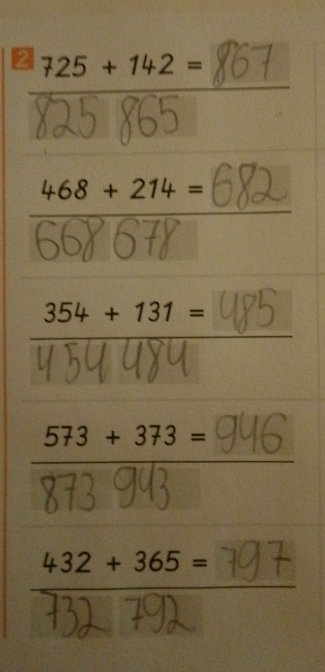 2 725 + 142 = 867
825 865
468 + 214 = 682
668 678
354 + 131 = 485
454 484
573 + 373 = 946
873 943
432 + 365 = 797
732 792